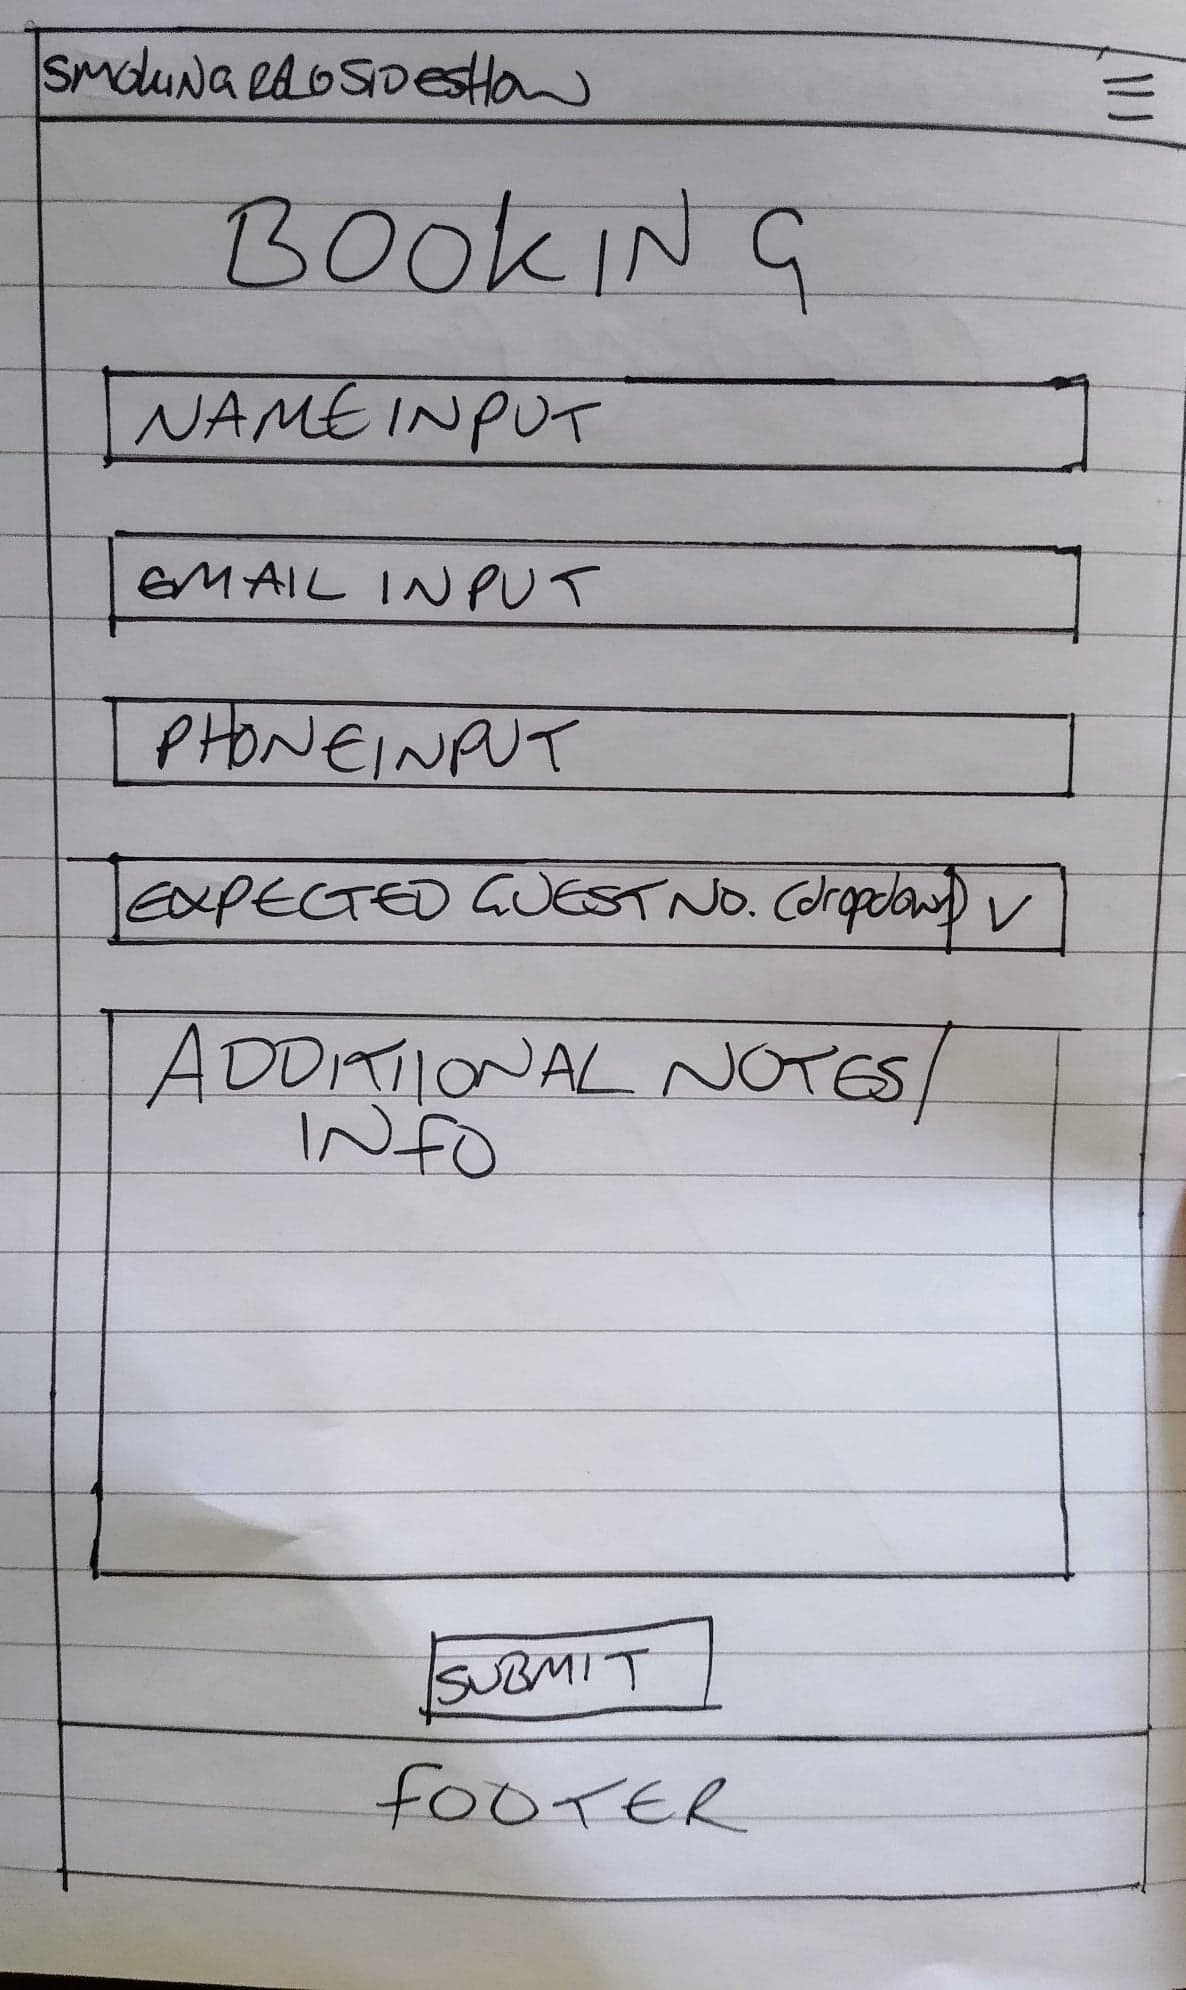 SMOKING
SIDESHOW
BOOKING
NAME INPUT
EMAIL INPUT
PHONE INPUT
EXPECTED GUEST NO. (dropdown)
ADDITIIONAL NOTES/
INFO
SUBMIT
FOOTER